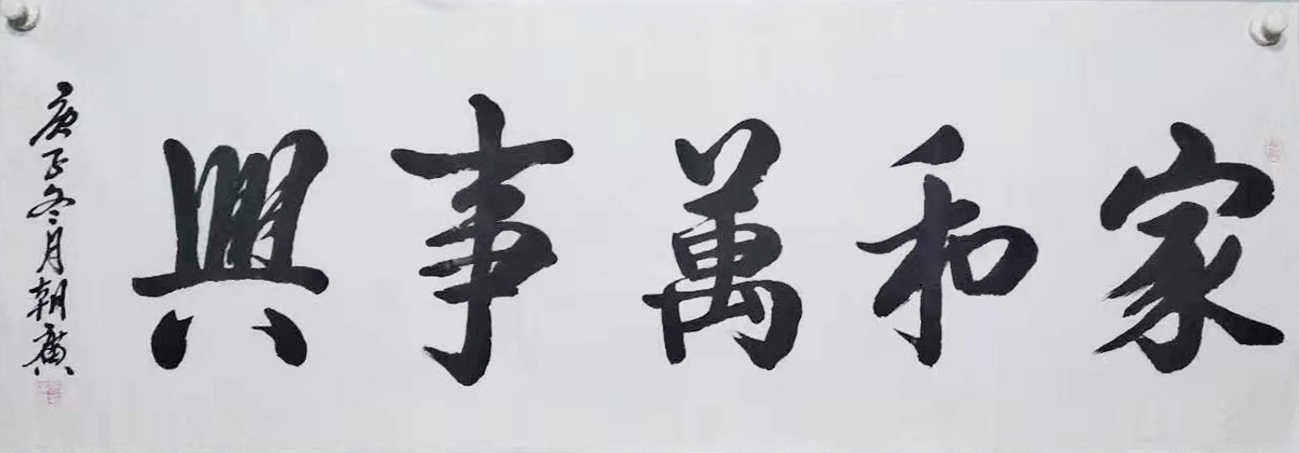 家和萬事興
庚子冬月朝廣